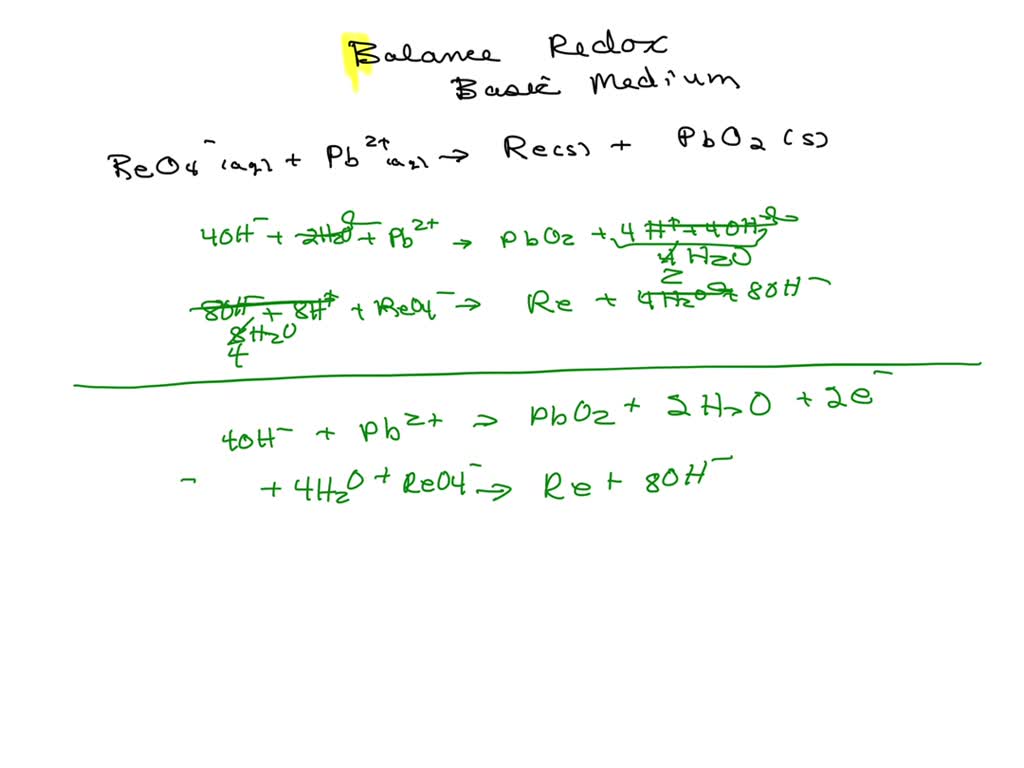 Balance Redox
Basic Medium
ReO4⁻ (aq) + Pb²⁺ (aq) → Re(s) + PbO2 (s)
4OH⁻ + 2H2O + Pb²⁺ → PbO2 + 4H⁺ + 4OH⁻
4 H2O
2
8OH⁻ + 8H⁺ + ReO4⁻ → Re + 4H2O + 8OH⁻
8H2O
4
4OH⁻ + Pb²⁺ → PbO2 + 2H2O + 2e⁻
⁻ + 4H2O + ReO4⁻ → Re + 8OH⁻